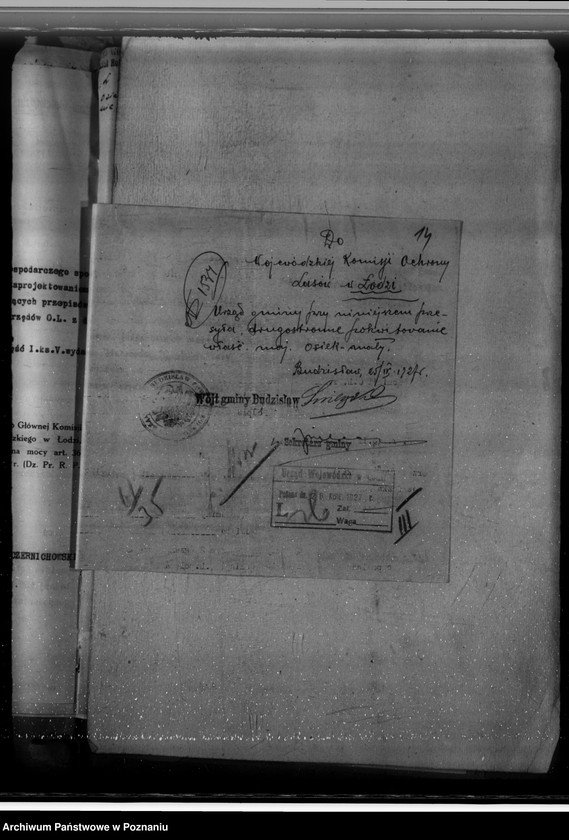 14
Do
Wojewódzkiej Komisji Ochrony
Lasów w Łodzi
1577
Urząd gminy przy niniejszem prze-
syła drugostronne pokwitowanie
właśc. maj. Osiek-mały.
Budzisław, 25/IV 1927 r.
Wójt gminy Budzisław
Sekretarz gminy
Urząd Wojewódzki w
Zał.
Wpłą
III
ospodarczego
zaprojektowaniem
ących przepisów
rzędów O.L. z
Głównej Komisji
zkiego w Łodzi
na mocy art.
r. (Dz. Pr. R. P.
CZERNICHOWSKI
Archiwum Państwowe w Poznaniu